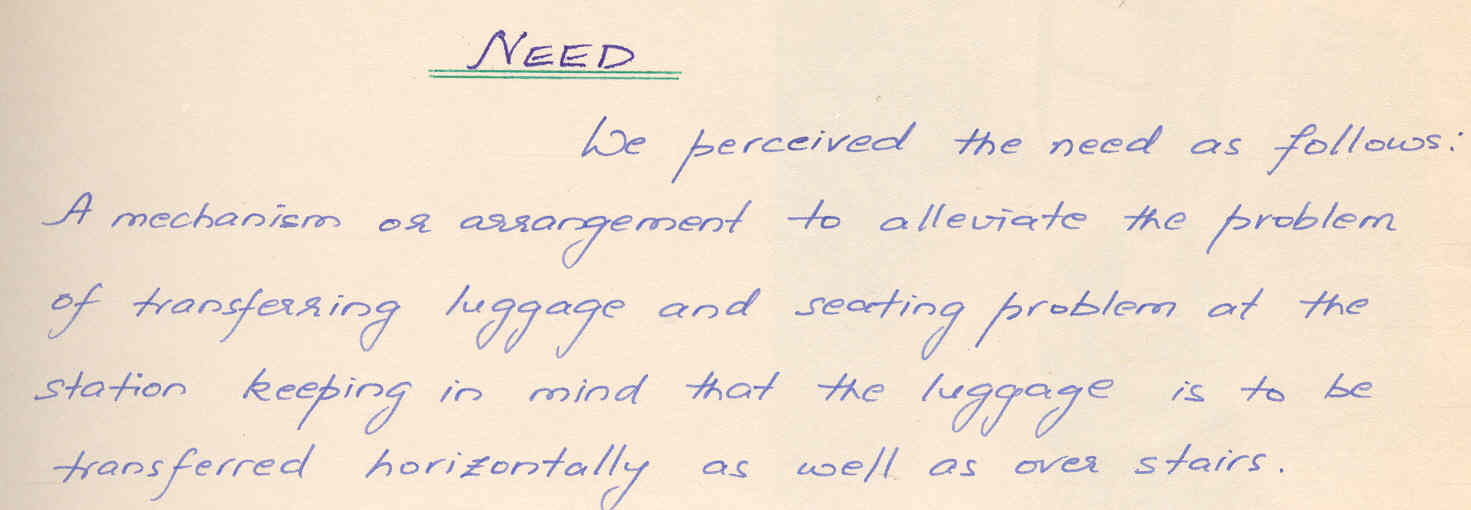 NEED
We perceived the need as follows:
A mechanism or arrangement to alleviate the problem
of transferring luggage and seating problem at the
station keeping in mind that the luggage is to be
transferred horizontally as well as over stairs.